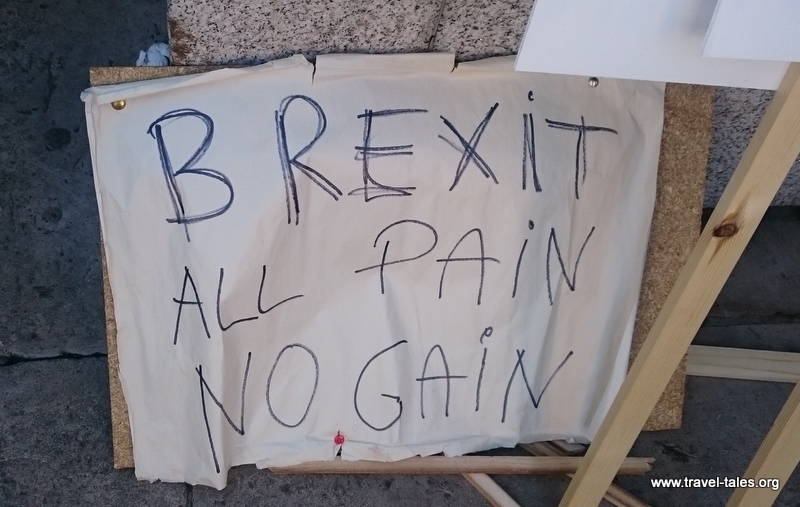 BREXiT
ALL PAiN
NO GAiN
www.travel-tales.org